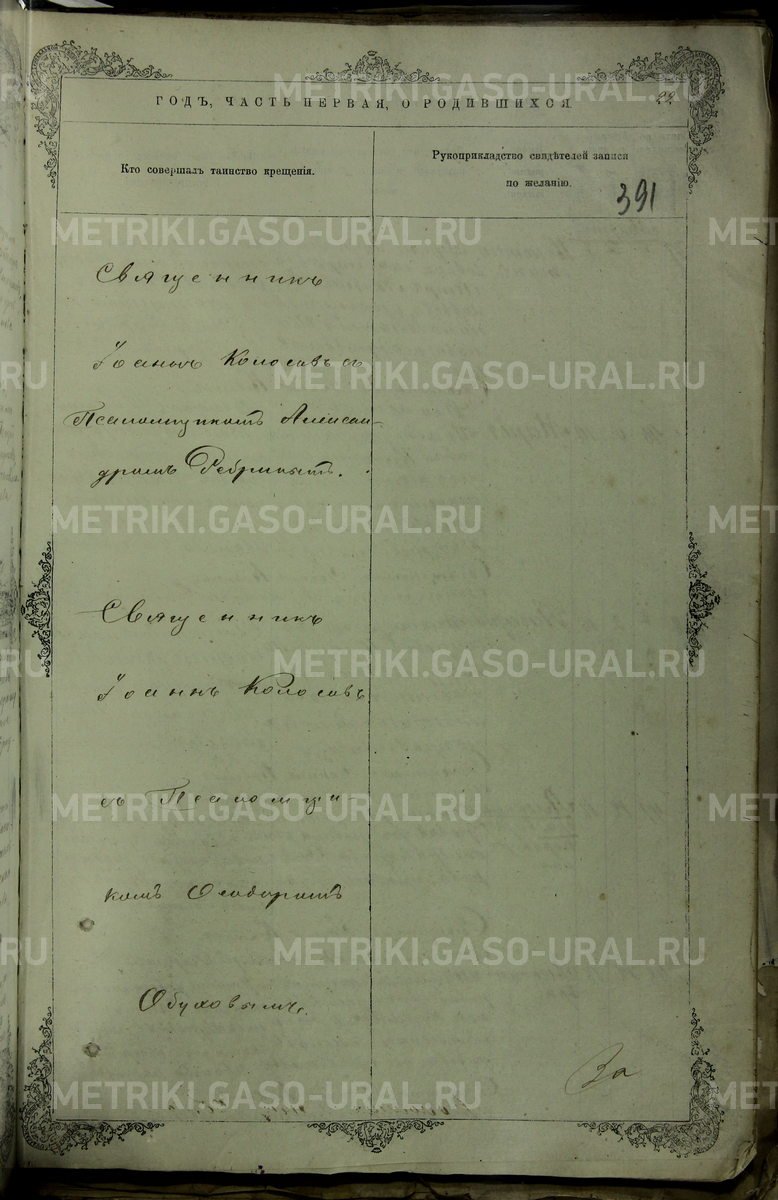 ГОДЪ, ЧАСТЬ ПЕРВАЯ, О РОДИВШИХСЯ.
22.
Кто совершалъ таинство крещенія.
Рукоприкладство свидѣтелей записи
по желанію.
391
Священникъ
Іоаннъ Колосовъ съ
Псаломщикомъ Алексан-
дромъ Ребринымъ.
Священникъ
Іоаннъ Колосовъ
съ Псаломщи-
комъ Ѳеодоромъ
Обуховымъ.
За
METRIKI.GASO-URAL.RU